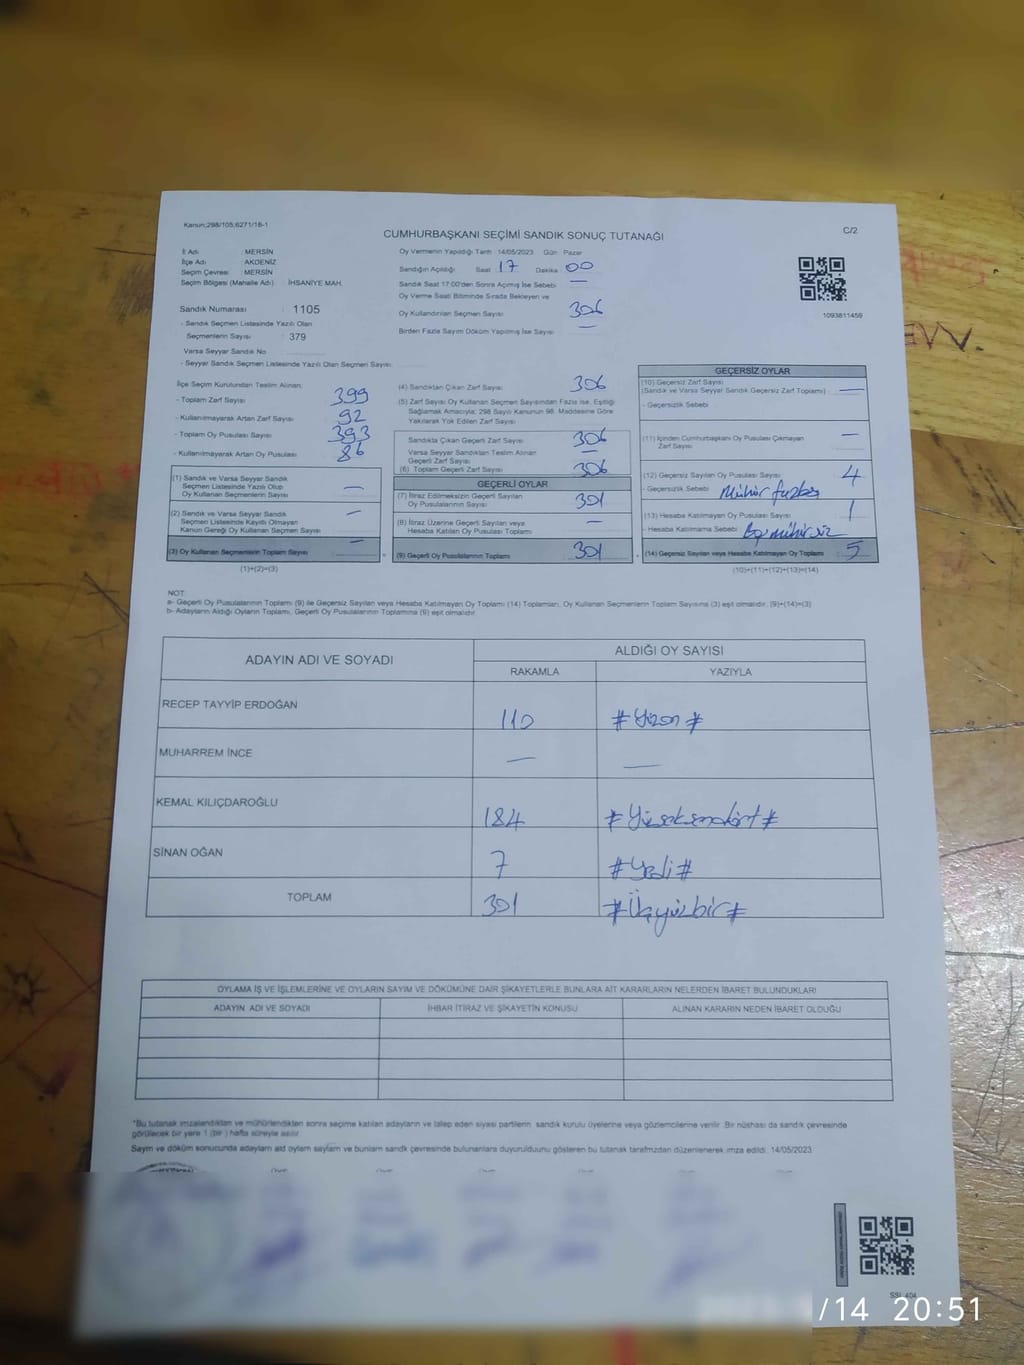 Kanun;298/105;6271/18-1
C/2
CUMHURBAŞKANI SEÇİMİ SANDIK SONUÇ TUTANAĞI
İl Adı : MERSİN
İlçe Adı : AKDENİZ
Seçim Çevresi : MERSİN
Seçim Bölgesi (Mahalle Adı) : İHSANİYE MAH.
Sandık Numarası : 1105
- Sandık Seçmen Listesinde Yazılı Olan
Seçmenlerin Sayısı : 379
Varsa Seyyar Sandık No
- Seyyar Sandık Seçmen Listesinde Yazılı Olan Seçmen Sayısı
Oy Vermenin Yapıldığı Tarih 14/05/2023 Gün Pazar
Sandığın Açıldığı Saat 17 Dakika 00
Sandık Saat 17.00'den Sonra Açılmış İse Sebebi —
Oy Verme Saati Bitiminde Sırada Bekleyen ve
Oy Kullandırılan Seçmen Sayısı 306
Birden Fazla Sayım Döküm Yapılmış İse Sayısı —
1093811459
İlçe Seçim Kurulundan Teslim Alınan;
- Toplam Zarf Sayısı 399
- Kullanılmayarak Artan Zarf Sayısı 92
- Toplam Oy Pusulası Sayısı 393
- Kullanılmayarak Artan Oy Pusulası 86
(1) Sandık ve Varsa Seyyar Sandık
Seçmen Listesinde Yazılı Olup
Oy Kullanan Seçmenlerin Sayısı —
(2) Sandık ve Varsa Seyyar Sandık
Seçmen Listesinde Kayıtlı Olmayan
Kanun Gereği Oy Kullanan Seçmen Sayısı —
(3) Oy Kullanan Seçmenlerin Toplam Sayısı —
(1)+(2)=(3)
(4) Sandıktan Çıkan Zarf Sayısı 306
(5) Zarf Sayısı Oy Kullanan Seçmen Sayısından Fazla ise, Eşitliği
Sağlamak Amacıyla; 298 Sayılı Kanunun 98. Maddesine Göre
Yakılarak Yok Edilen Zarf Sayısı
Sandıkta Çıkan Geçerli Zarf Sayısı 306
Varsa Seyyar Sandıktan Teslim Alınan
Geçerli Zarf Sayısı —
(6) Toplam Geçerli Zarf Sayısı 306
GEÇERLİ OYLAR
(7) İtiraz Edilmeksizin Geçerli Sayılan
Oy Pusulalarının Sayısı 301
(8) İtiraz Üzerine Geçerli Sayılan veya
Hesaba Katılan Oy Pusulası Toplamı —
(9) Geçerli Oy Pusulalarının Toplamı 301
GEÇERSİZ OYLAR
(10) Geçersiz Zarf Sayısı
(Sandık ve Varsa Seyyar Sandık Geçersiz Zarf Toplamı) —
- Geçersizlik Sebebi
(11) İçinden Cumhurbaşkanı Oy Pusulası Çıkmayan
Zarf Sayısı —
(12) Geçersiz Sayılan Oy Pusulası Sayısı 4
- Geçersizlik Sebebi Mühür fazla
(13) Hesaba Katılmayan Oy Pusulası Sayısı 1
- Hesaba Katılmama Sebebi
(14) Geçersiz Sayılan veya Hesaba Katılmayan Oy Toplamı 5
(10)+(11)+(12)+(13)=(14)
NOT:
a- Geçerli Oy Pusulalarının Toplamı (9) ile Geçersiz Sayılan veya Hesaba Katılmayan Oy Toplamı (14) Toplamları, Oy Kullanan Seçmenlerin Toplam Sayısına (3) eşit olmalıdır. (9)+(14)=(3)
b- Adayların Aldığı Oyların Toplamı, Geçerli Oy Pusulalarının Toplamına (9) eşit olmalıdır
ADAYIN ADI VE SOYADI
ALDIĞI OY SAYISI
RAKAMLA YAZIYLA
RECEP TAYYİP ERDOĞAN 110 #Yüzon#
MUHARREM İNCE — —
KEMAL KILIÇDAROĞLU 184 #Yüzseksendört#
SİNAN OĞAN 7 #Yedi#
TOPLAM 301 #Üçyüzbir#
OYLAMA İŞ VE İŞLEMLERİNE VE OYLARIN SAYIM VE DÖKÜMÜNE DAİR ŞİKAYETLERLE BUNLARA AİT KARARLARIN NELERDEN İBARET BULUNDUKLARI
ADAYIN ADI VE SOYADI İHBAR İTİRAZ VE ŞİKAYETİN KONUSU ALINAN KARARIN NEDEN İBARET OLDUĞU
*Bu tutanak imzalandıktan ve mühürlendikten sonra seçime katılan adayların ve talep eden siyasi partilerin sandık kurulu üyelerine veya gözlemcilerine verilir. Bir nüshası da sandık çevresinde
görülecek bir yere 1 (bir) hafta süreyle asılır.
Sayım ve döküm sonucunda adayların ald oyların sayların ve bunların sandk çevresinde bulunanlara duyurulduunu gösteren bu tutanak tarafmzdan düzenlenerek imza edildi. 14/05/2023
/14 20:51